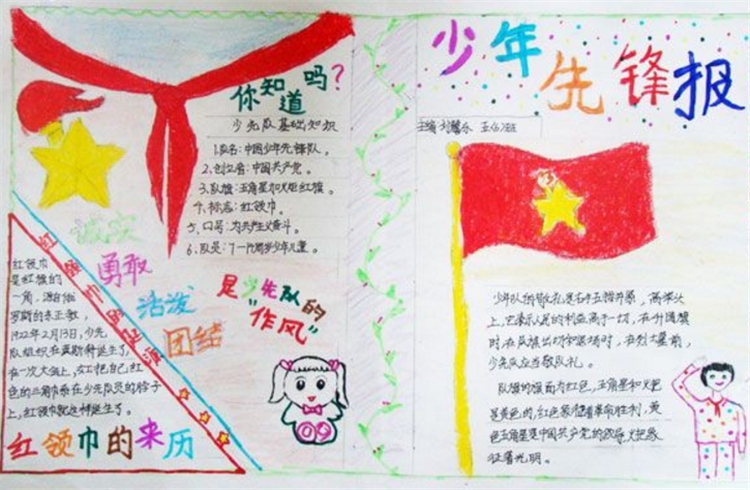 少年先锋报
主编:刘馨乐 五(6)班
你知道吗?
少先队基础知识
1.队名:中国少年先锋队。
2.创立者:中国共产党。
3.队旗:五角星加火炬红旗。
4.标志:红领巾。
5.口号:为共产主义奋斗。
6.队员:7—14周岁少年儿童。
诚实
勇敢
活泼
团结
是少先队的
"作风"
红领巾
是红旗的
一角,源自俄
罗斯的东正教,
1922年2月13日,少先
队组织在莫斯科诞生了,
在一次大会上,女工把自己红
色的三角巾系在少先队员的脖子
上,红领巾就这样诞生了。
红领巾的来历
少年队的敬礼是右手五指并紧,高举头
上,它表示人民的利益高于一切,在升国旗
时,在队旗出场和退场时,在烈士墓前,
少先队应当敬队礼。
队旗的旗面为红色,五角星和火把
是黄色的,红色象征着革命胜利,黄
色五角星是中国共产党的领导,火把象
征着光明。